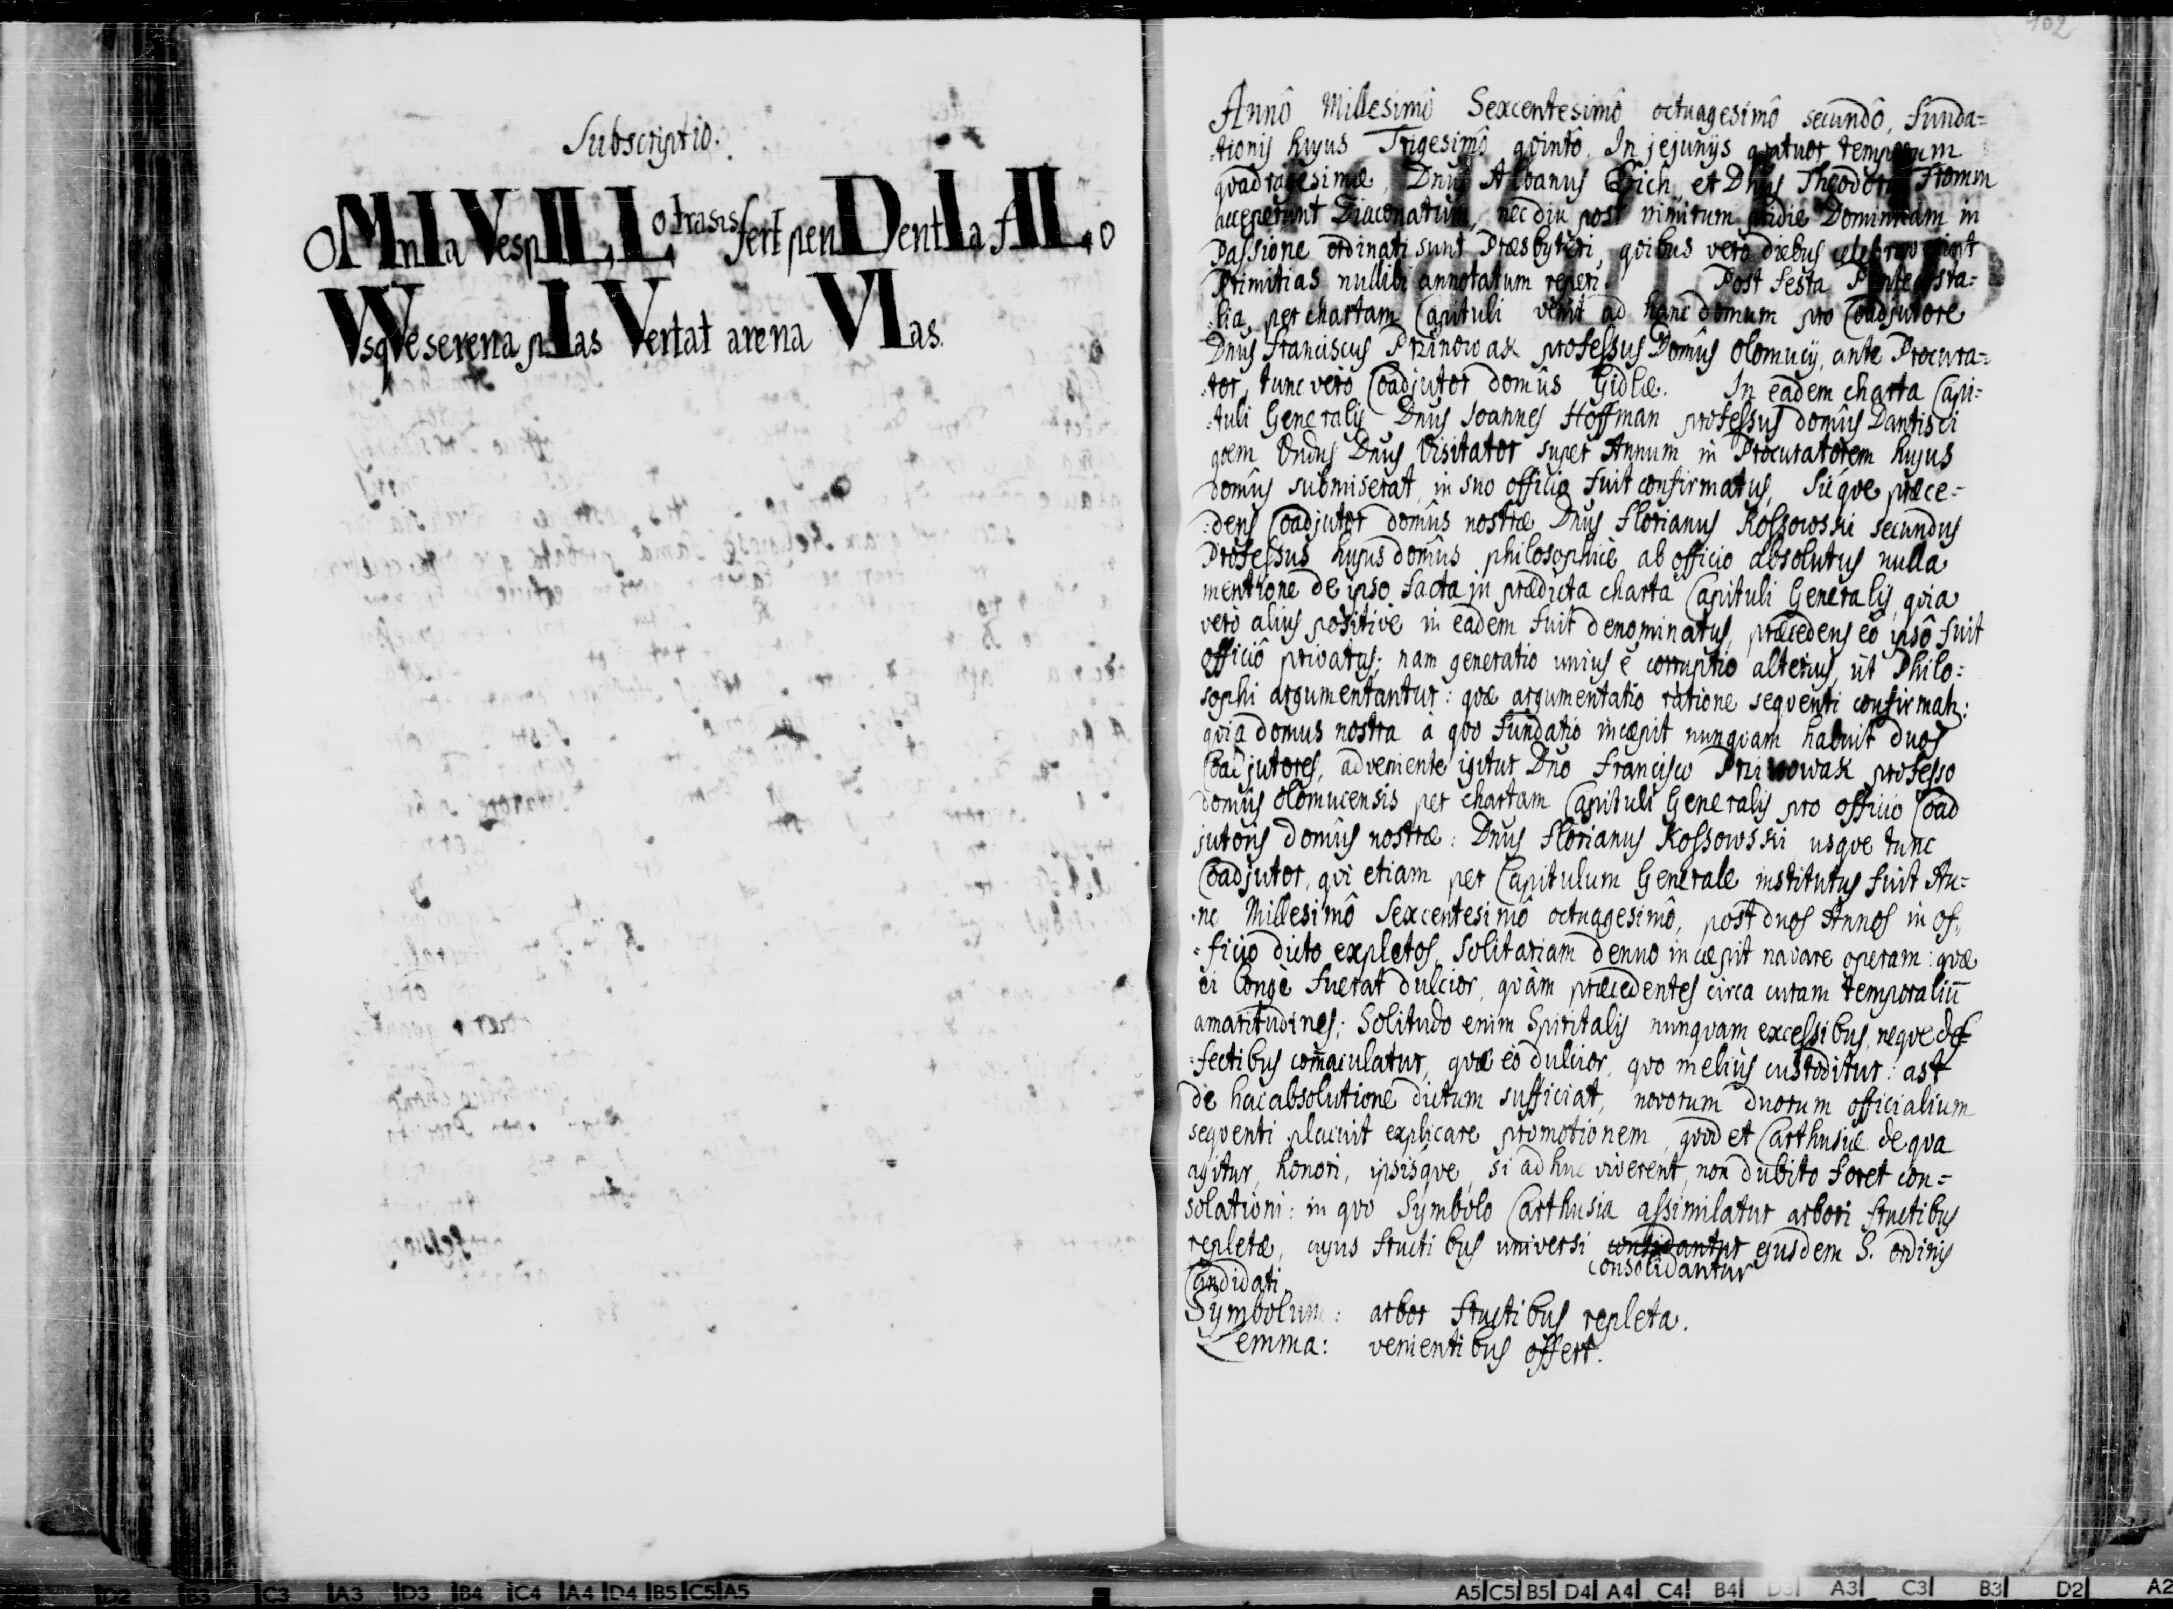 Subscriptio.
OMnIa VespILLo trasis fert penDentIa fILo
VsqVe serena pIas Vertat arena VIas.
102
Annô Millesimô Sexcentesimô octuagesimô secundô, funda=
:tionis hujus Trigesimô qvintô. In jejunijs qvatuor temporum
qvadragesimæ, Dnus Albanus Eich et Dnus Theodorus Fromm
acceperunt Diaconatum, nec diu post nimirum pridie Dominicam in
Passione ordinati sunt Præsbyteri, qvibus vero diebus celebraverint
Primitias nullibi annotatum reperi. Post festa Pentecosta=
:lia, per chartam Capituli venit ad hanc domum pro Coadjutore
Dnus Franciscus Przinowak professus Domûs Olomucij, ante Procura=
:tor, tunc vero Coadjutor domûs Gidlæ. In eadem charta Capi=
:tuli Generalis Dnus Joannes Hoffman professus domûs Dantisci
qvem Vndus Dnus Visitator super Annum in Procuratorem hujus
domûs submiserat, in suo officio fuit confirmatus, sicqve præce=
:dens Coadjutor domûs nostræ Dnus Florianus Kossowski secundus
Professus hujus domûs philosophicè ab officio absolutus nulla
mentione de ipso facta in prædicta charta Capituli Generalis, qvia
vero alius positivè in eadem fuit denominatus, præcedens eô ipsô fuit
officiô privatus; nam generatio unius è corruptio alterius, ut Philo=
sophi argumentantur: qvæ argumentatio ratione seqventi confirmatr:
qvia domus nostra à qvo fundatio incæpit nunqvam habuit duos
Coadjutores, adveniente igitur Dno Francisco Przinowak professo
domûs Olomucensis per chartam Capituli Generalis pro officio Coad
jutoris domûs nostræ: Dnus Florianus Kossowski usqve tunc
Coadjutor, qvi etiam per Capitulum Generale institutus fuit An=
:no Millesimô Sexcentesimô octuagesimô, post duos Annos in of=
:ficio dicto expletos, Solitariam denuo incæpit navare operam: qvæ
ei longè fuerat dulcior, qvàm præcedentes circa curam temporaliũ
amaritudines; Solitudo enim Spiritalis nunqvam excessibus, neqve def
:fectibus com̃aculatur, qvæ eò dulcior, qvo meliùs custoditur: ast
de hac absolutione dictum sufficiat, novorum duorum officialium
seqventi placuit explicare promotionem, qvod et Carthusiæ de qva
agitur, honori, ipsisqve, si adhuc viverent, non dubito foret con=
solationi: in qvo Symbolo Carthusia assimilatur arbori fructibus
repletæ, cujus fructibus universi ejusdem S. ordinis
consolidantur
Candidati.
Symbolum: arbor fructibus repleta.
Lemma: venientibus offert.